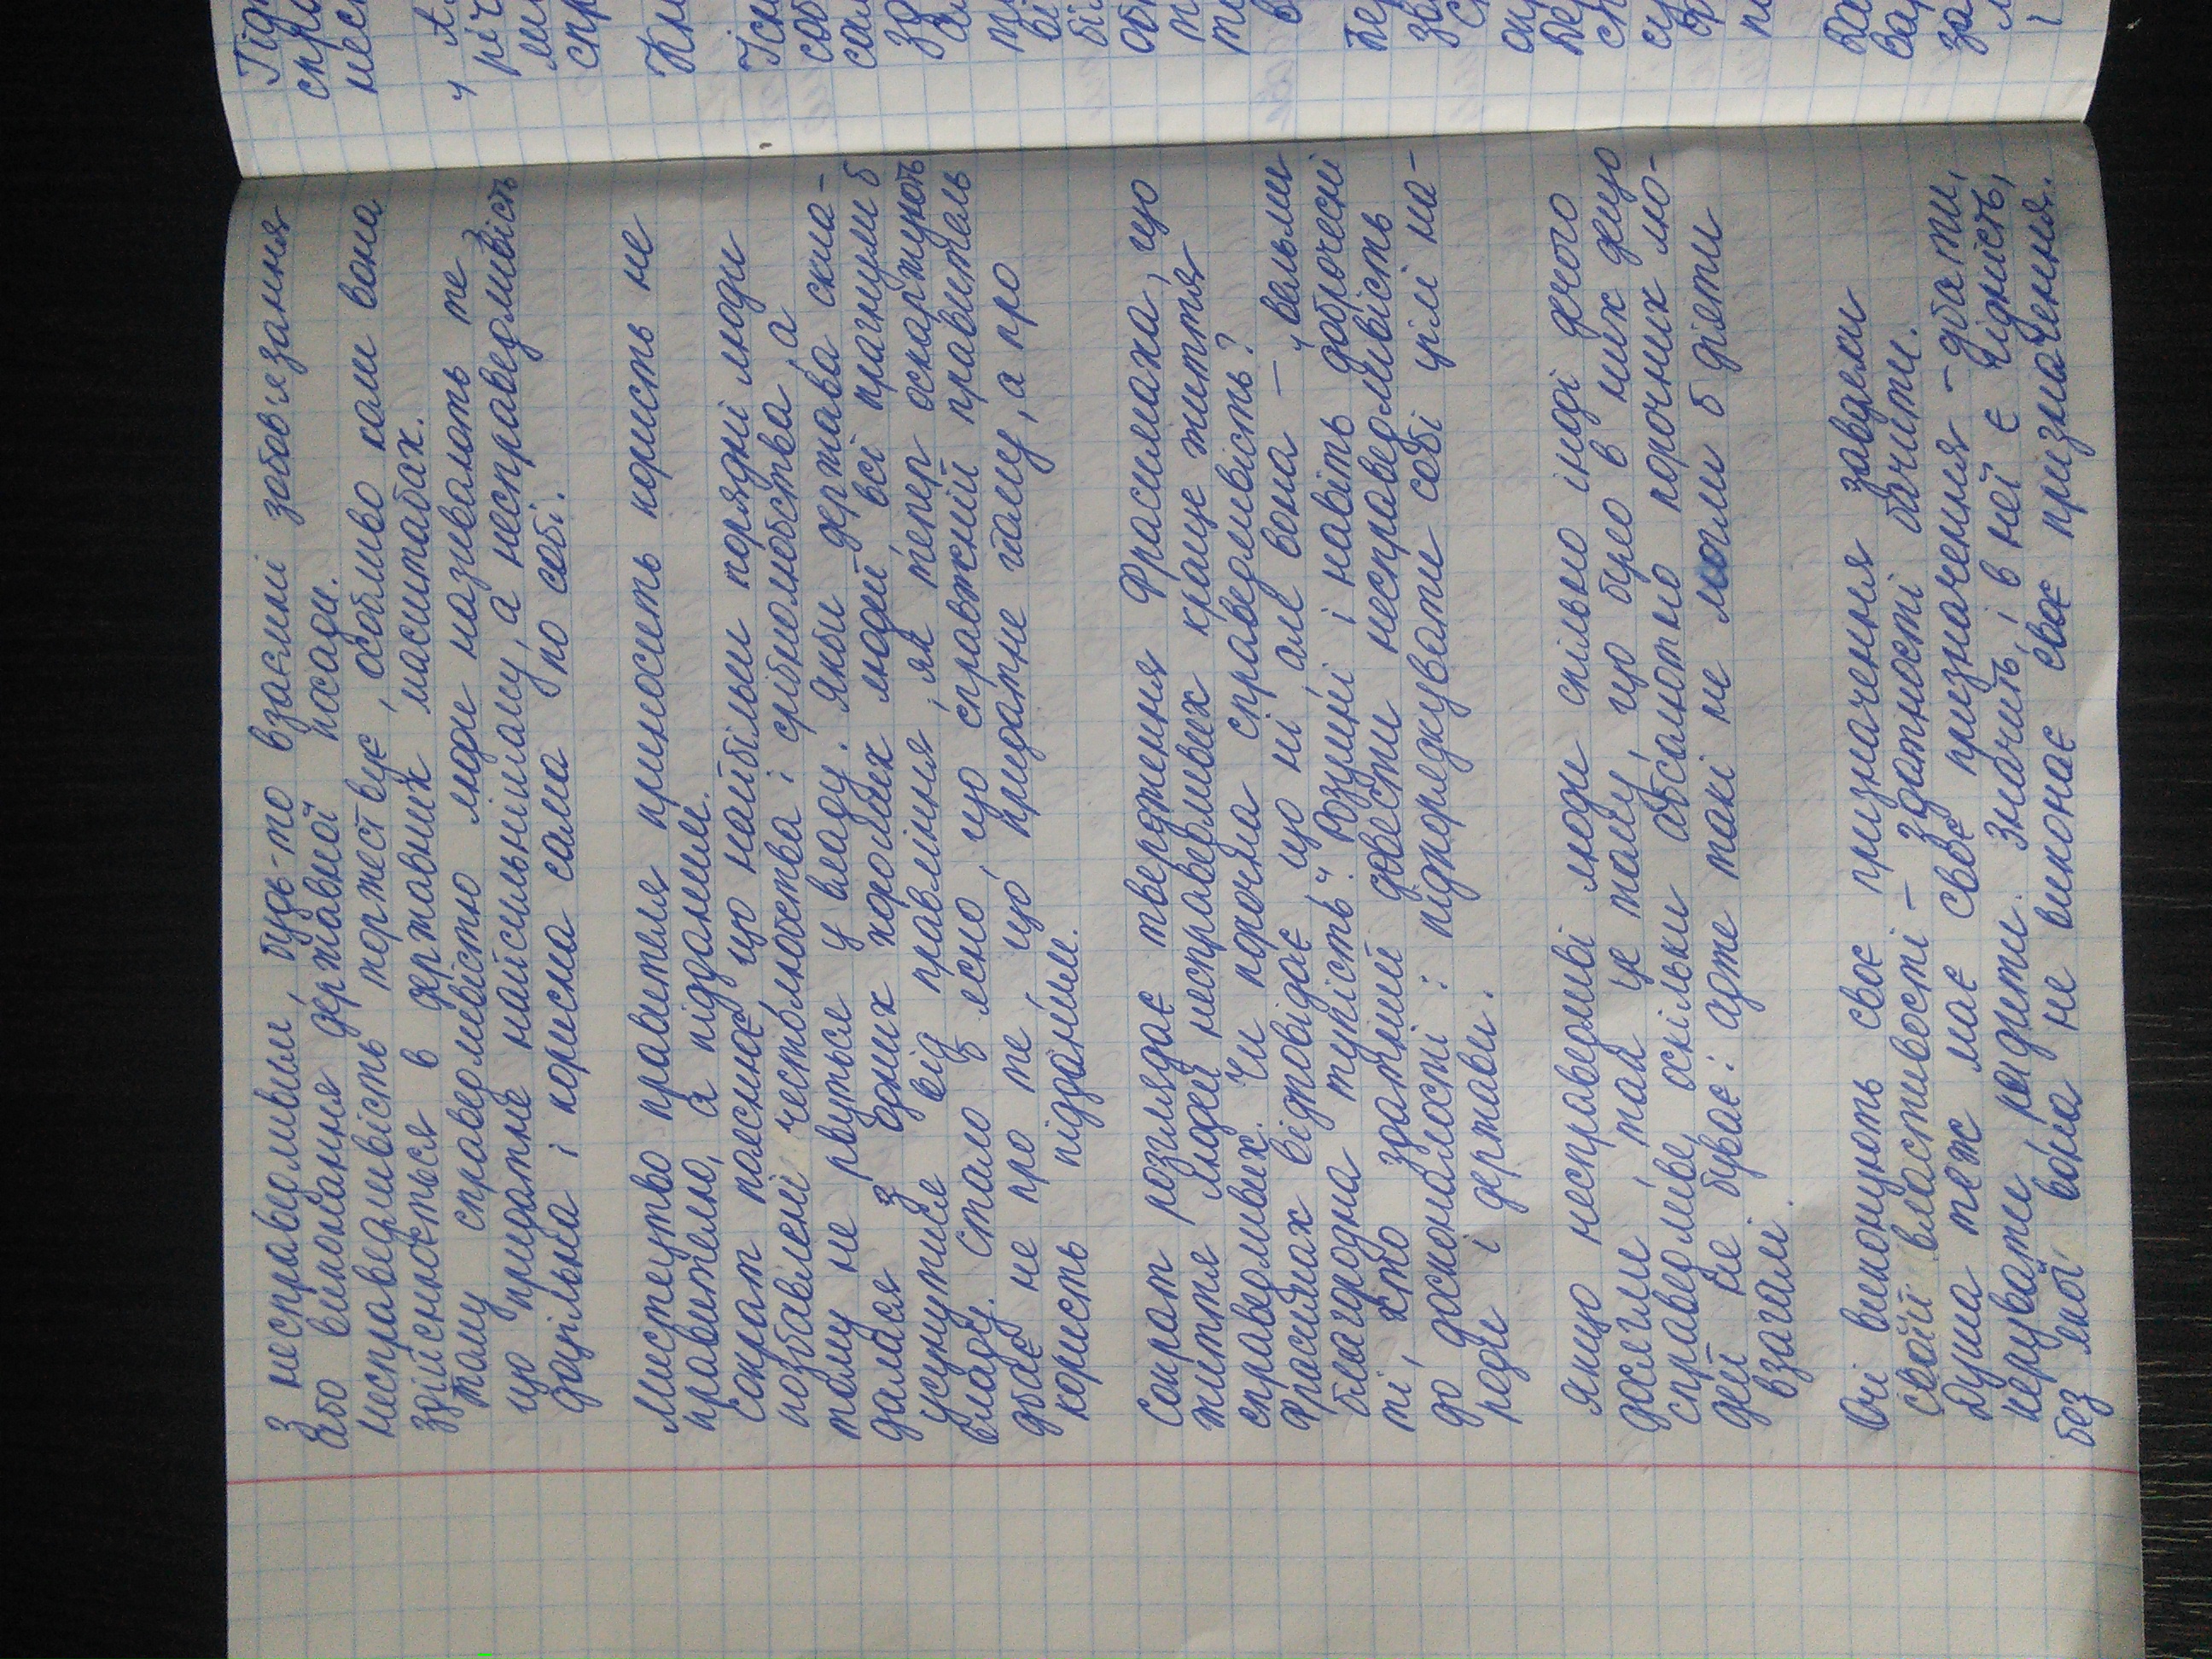 з несправедливим, будь-то взаємні зобов'язання
або виконання державної посади.
несправедливість торжествує, особливо коли вона
здійснюється в державних масштабах.
Тому справедливістю люди називають те,
що придатне найсильнішому, а несправедливість
доцільна і корисна сама по собі.
Мистецтво правителя приносить користь не
правителю, а підданим.
Сократ пояснює, що найбільш порядні люди
позбавлені честолюбства і срібнолюбства, а
тому не рвуться у владу. Якби держава скла-
далася з одних хороших людей, всі прагнули б
усунутися від правління, як тепер оскаржують
владу. Стало б ясно, що справжній правитель
дбає не про те, що придатне йому, а про
користь підданим.
Сократ розглядає твердження Фрасимаха, що
життя людей несправедливих краще життя
справедливих. Чи порочна справедливість?
Фрасимах відповідає, що ні, але вона – "вельми
благородна тупість". Розумні і навіть доброчесні
ті, хто здатний довести несправедливість
до досконалості і підпорядкувати собі цілі на-
роди і держави.
Якщо несправедливі люди спільно іноді дечого
досягли, так це тому, що було в них дещо
справедливе, оскільки абсолютно порочних лю-
дей не буває: адже такі не могли б діяти
взагалі.
Очі виконують своє призначення завдяки
своїй властивості – здатності бачити.
Душа теж має своє призначення – дбати,
керувати, радити. Значить, і в неї є гідність,
без якої вона не виконає своє призначення.